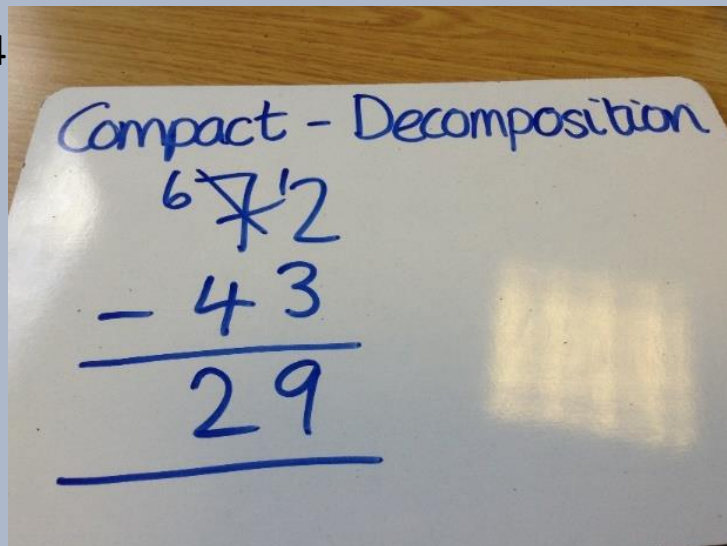 Compact - Decomposition
6 7 12
- 4 3
2 9